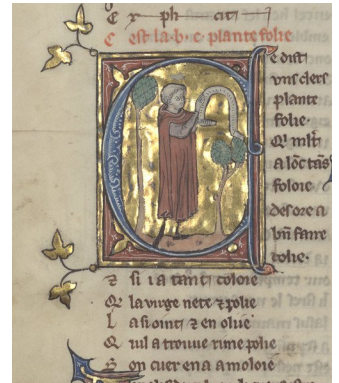 E x ph cit
C est la b c plante folie
e dist
uns clers
plante
folie
Q mlt
a lōc tās
foloie
desore a
bn faire
tolie
⁊ si ia tant coloie
Q la virge nete ⁊ polie
L a si oint ⁊ en olie
Q iul a trouue rime polie
S on cuer en a amoloie